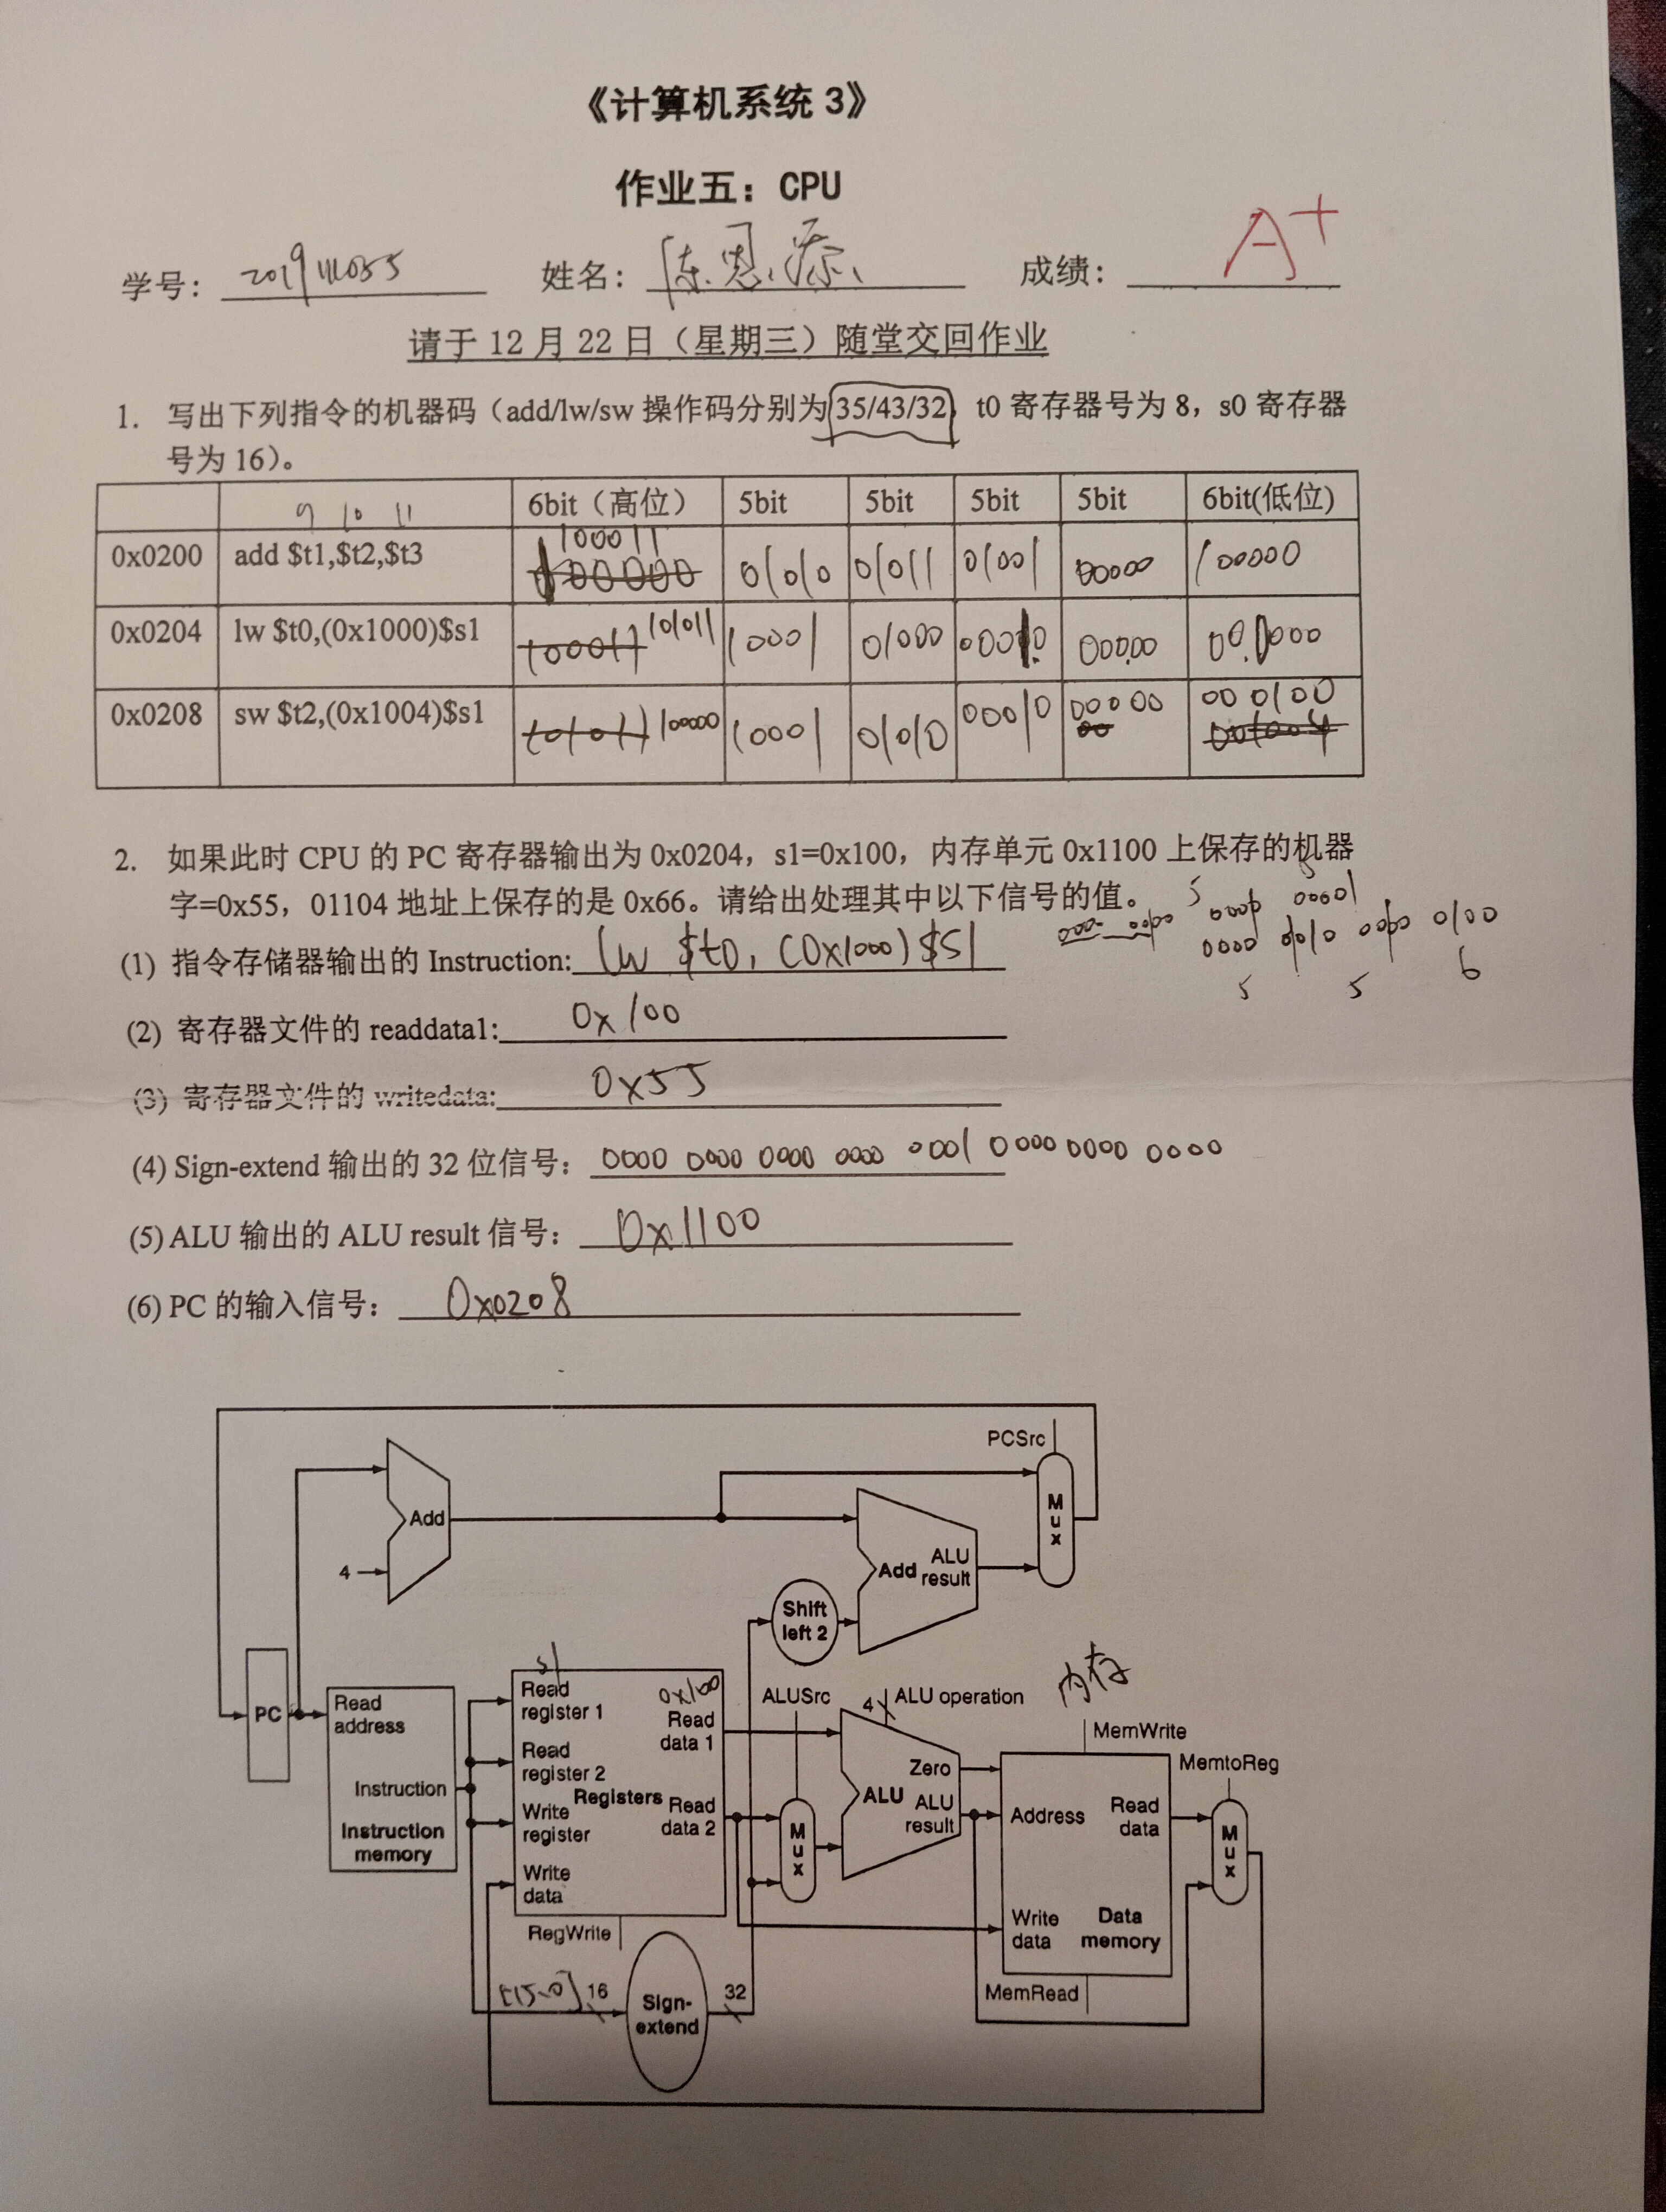 《计算机系统 3》
作业五：CPU
学号： 2019111035 姓名： 陈恩添 成绩： A+
请于 12 月 22 日（星期三）随堂交回作业
1. 写出下列指令的机器码（add/lw/sw 操作码分别为 35/43/32，t0 寄存器号为 8，s0 寄存器
号为 16）。
6bit（高位） 5bit 5bit 5bit 5bit 6bit(低位)
9 10 11
0x0200 add $t1,$t2,$t3 100011 01010 01011 01001 00000 100000
0x0204 lw $t0,(0x1000)$s1 100011 101011 10001 01000 00010 00000 000000
0x0208 sw $t2,(0x1004)$s1 101011 100000 10001 01010 00010 00000 000100
2. 如果此时 CPU 的 PC 寄存器输出为 0x0204，s1=0x100，内存单元 0x1100 上保存的机器
字=0x55，01104 地址上保存的是 0x66。请给出处理其中以下信号的值。
(1) 指令存储器输出的 Instruction: lw $t0, (0x1000)$s1
5 5 6
(2) 寄存器文件的 readdata1: 0x100
(3) 寄存器文件的 writedata: 0x55
(4) Sign-extend 输出的 32 位信号： 0000 0000 0000 0000 0001 0000 0000 0000
(5) ALU 输出的 ALU result 信号： 0x1100
(6) PC 的输入信号： 0x0208
PCSrc
Add
4
Mux
Add ALU result
Shift left 2
s1
内存
PC
Read address
Instruction
Instruction memory
Read register 1
0x100
Read data 1
Read register 2
Registers
Write register
Read data 2
Write data
RegWrite
ALUSrc
Mux
4
ALU operation
Zero
ALU
ALU result
MemWrite
Address
Read data
Write data
Data memory
MemRead
MemtoReg
Mux
[15-0]
16
Sign-extend
32